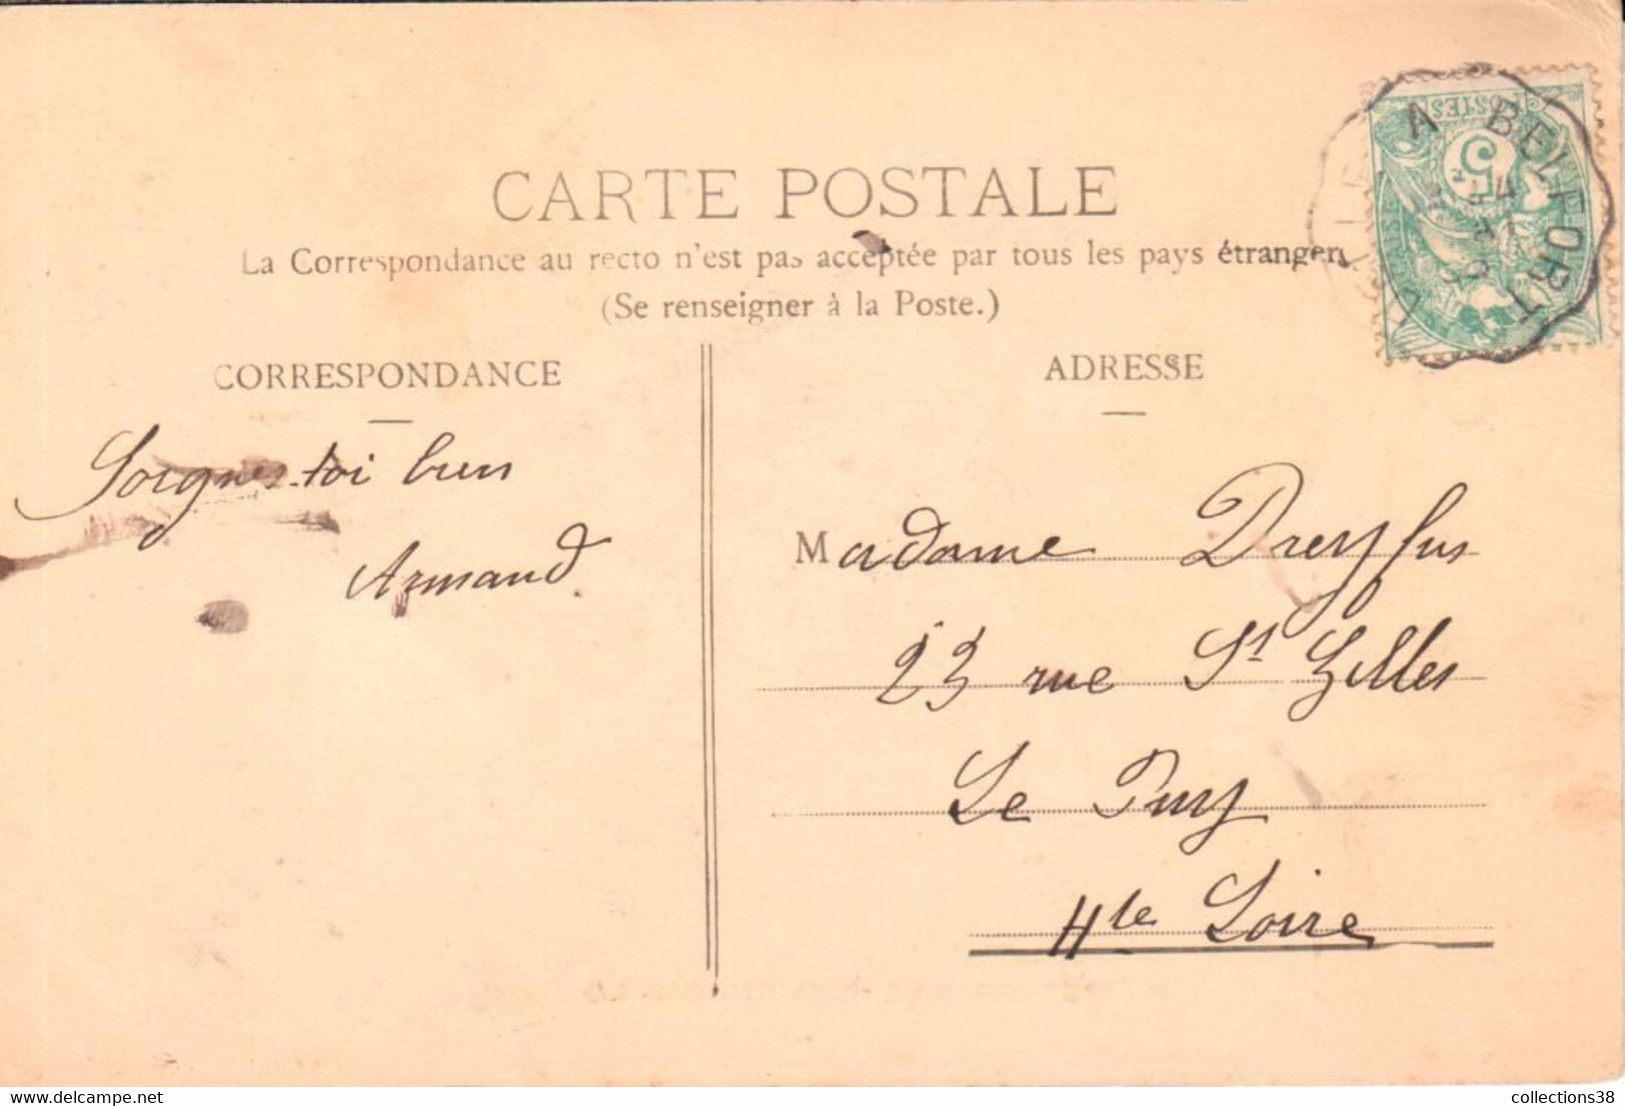 CARTE POSTALE
La Correspondance au recto n'est pas acceptée par tous les pays étrangers
(Se renseigner à la Poste.)
CORRESPONDANCE
ADRESSE
Soignes-toi bien
Armand.
Madame Dreyfus
23 rue St Gilles
Le Puy
Hte Loire
POSTES
5
A BELFORT
delcampe.net
collections38